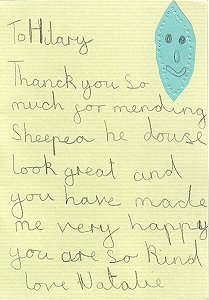 To Hilary
Thanck you so
much for mending
Sheepea he douse
look great and
you have made
me very happy
you are so kind
love Natalie